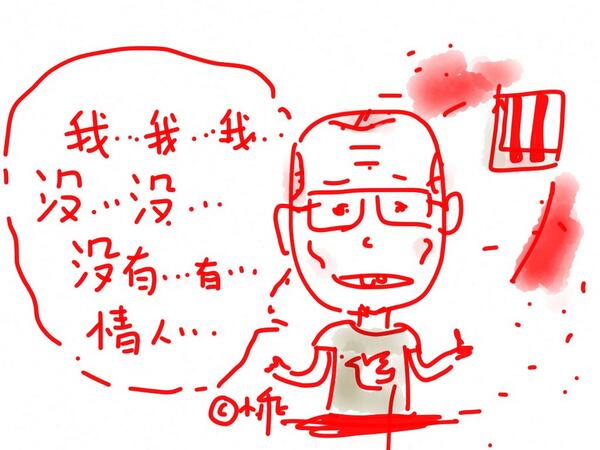 我…我…我…
没…没…
没有…有…
情人…